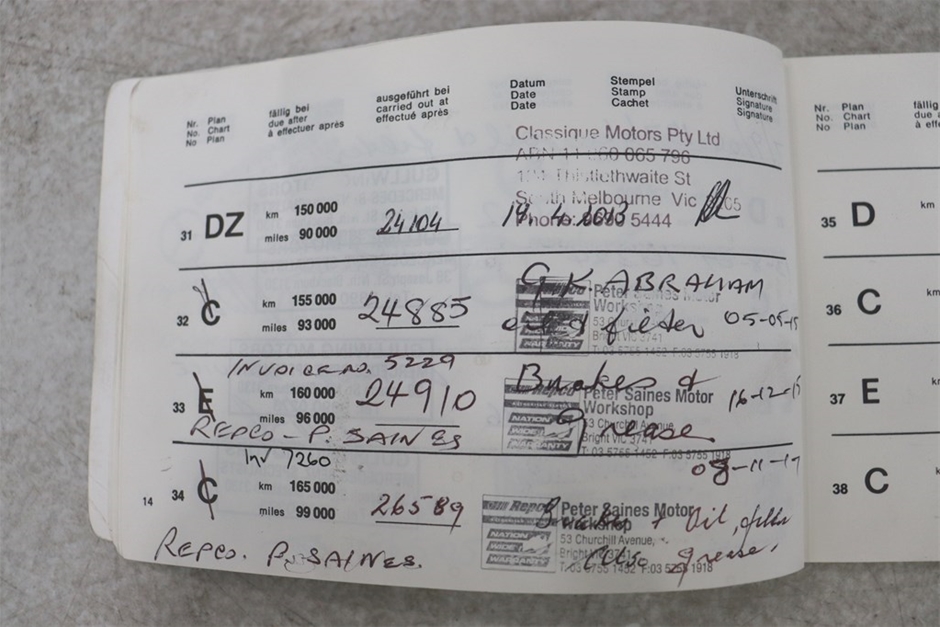 Nr. Plan fällig bei ausgeführt bei Datum Stempel Unterschrift
No. Chart due after carried out at Date Stamp Signature
No Plan à effectuer après effectué après Date Cachet Signature
Classique Motors Pty Ltd
065 796
Thistlethwaite St
South Melbourne Vic
Phone: 5444
31 DZ km 150 000 24104
miles 90 000
32 C km 155 000 24885 G.K. ABRAHAM
miles 93 000 filter 05-05-15
Repco Peter Saines Motor
Workshop
53 Churchill
Bright VIC 3741
T: 03 5755 1452 F:03 5755 1918
INVOICE NO. 5229
33 E km 160 000 24910 Brakes &
miles 96 000 Grease
REPCO - P. SAINES
Repco Peter Saines Motor
Workshop
53 Churchill Avenue,
NATION WIDE WARRANTY Bright VIC 3741
T: 03 5755 1452 F:03 5755 1918
Inv 7260
14 34 C km 165 000 26589
miles 99 000
Repco Peter Saines Motor
Workshop
NATION WIDE WARRANTY 53 Churchill Avenue,
Bright VIC 3741
F:03 5255 1918
Oil, grease.
REPCO. P. SAINES.
Nr. Plan fällig
No. Chart due
No Plan à effe
35 D km
36 C km
37 E km
38 C km